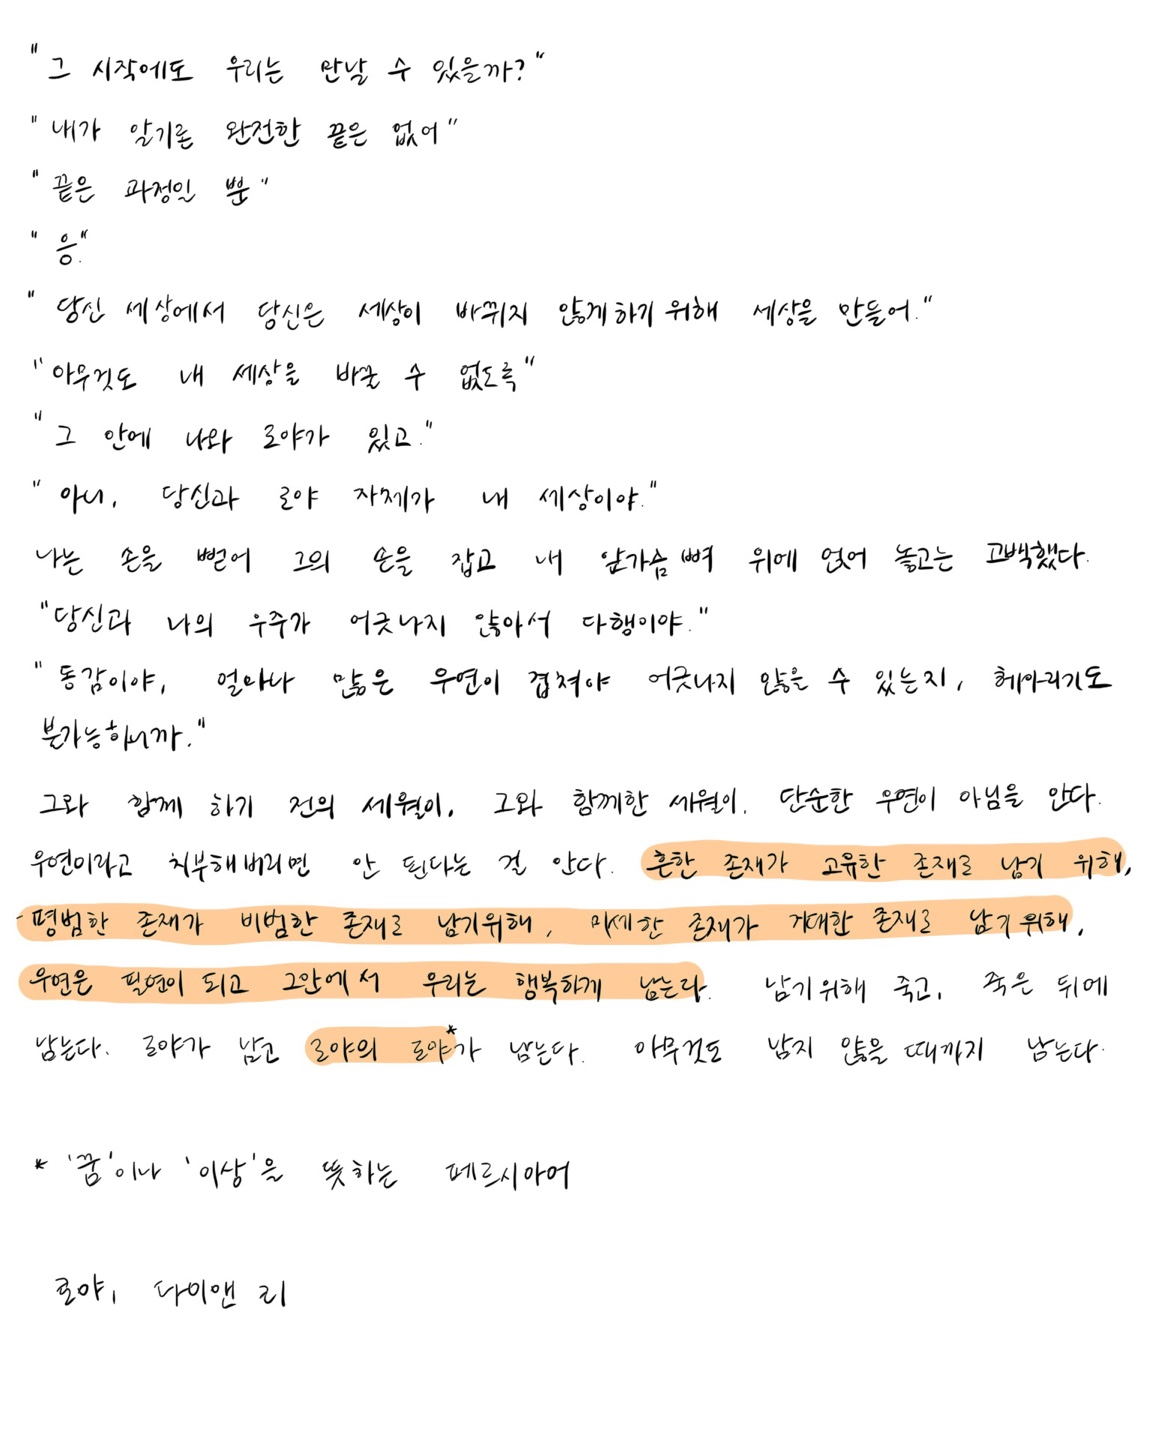 "그 시작에도 우리는 만날 수 있을까?"
"내가 알기론 완전한 끝은 없어"
"끝은 과정일 뿐"
"응."
"당신 세상에서 당신은 세상이 바뀌지 않게하기 위해 세상을 만들어."
"아무것도 내 세상을 바꿀 수 없도록"
"그 안에 나와 로야가 있고."
"아니, 당신과 로야 자체가 내 세상이야."
나는 손을 뻗어 그의 손을 잡고 내 앞가슴뼈 위에 얹어 놓고는 고백했다.
"당신과 나의 우주가 어긋나지 않아서 다행이야."
"동감이야, 얼마나 많은 우연이 겹쳐야 어긋나지 않을 수 있는지, 헤아리기도
불가능하니까."
그와 함께 하기 전의 세월이, 그와 함께한 세월이, 단순한 우연이 아님을 안다.
우연이라고 치부해버리면 안 된다는 걸 안다. 흔한 존재가 고유한 존재로 남기 위해,
평범한 존재가 비범한 존재로 남기위해, 미세한 존재가 거대한 존재로 남기위해,
우연은 필연이 되고 그안에서 우리는 행복하게 남는다. 남기위해 죽고, 죽은 뒤에
남는다. 로야가 남고 로야의 로야*가 남는다. 아무것도 남지 않을 때까지 남는다.
* '꿈'이나 '이상'을 뜻하는 페르시아어
로야, 다이앤 리